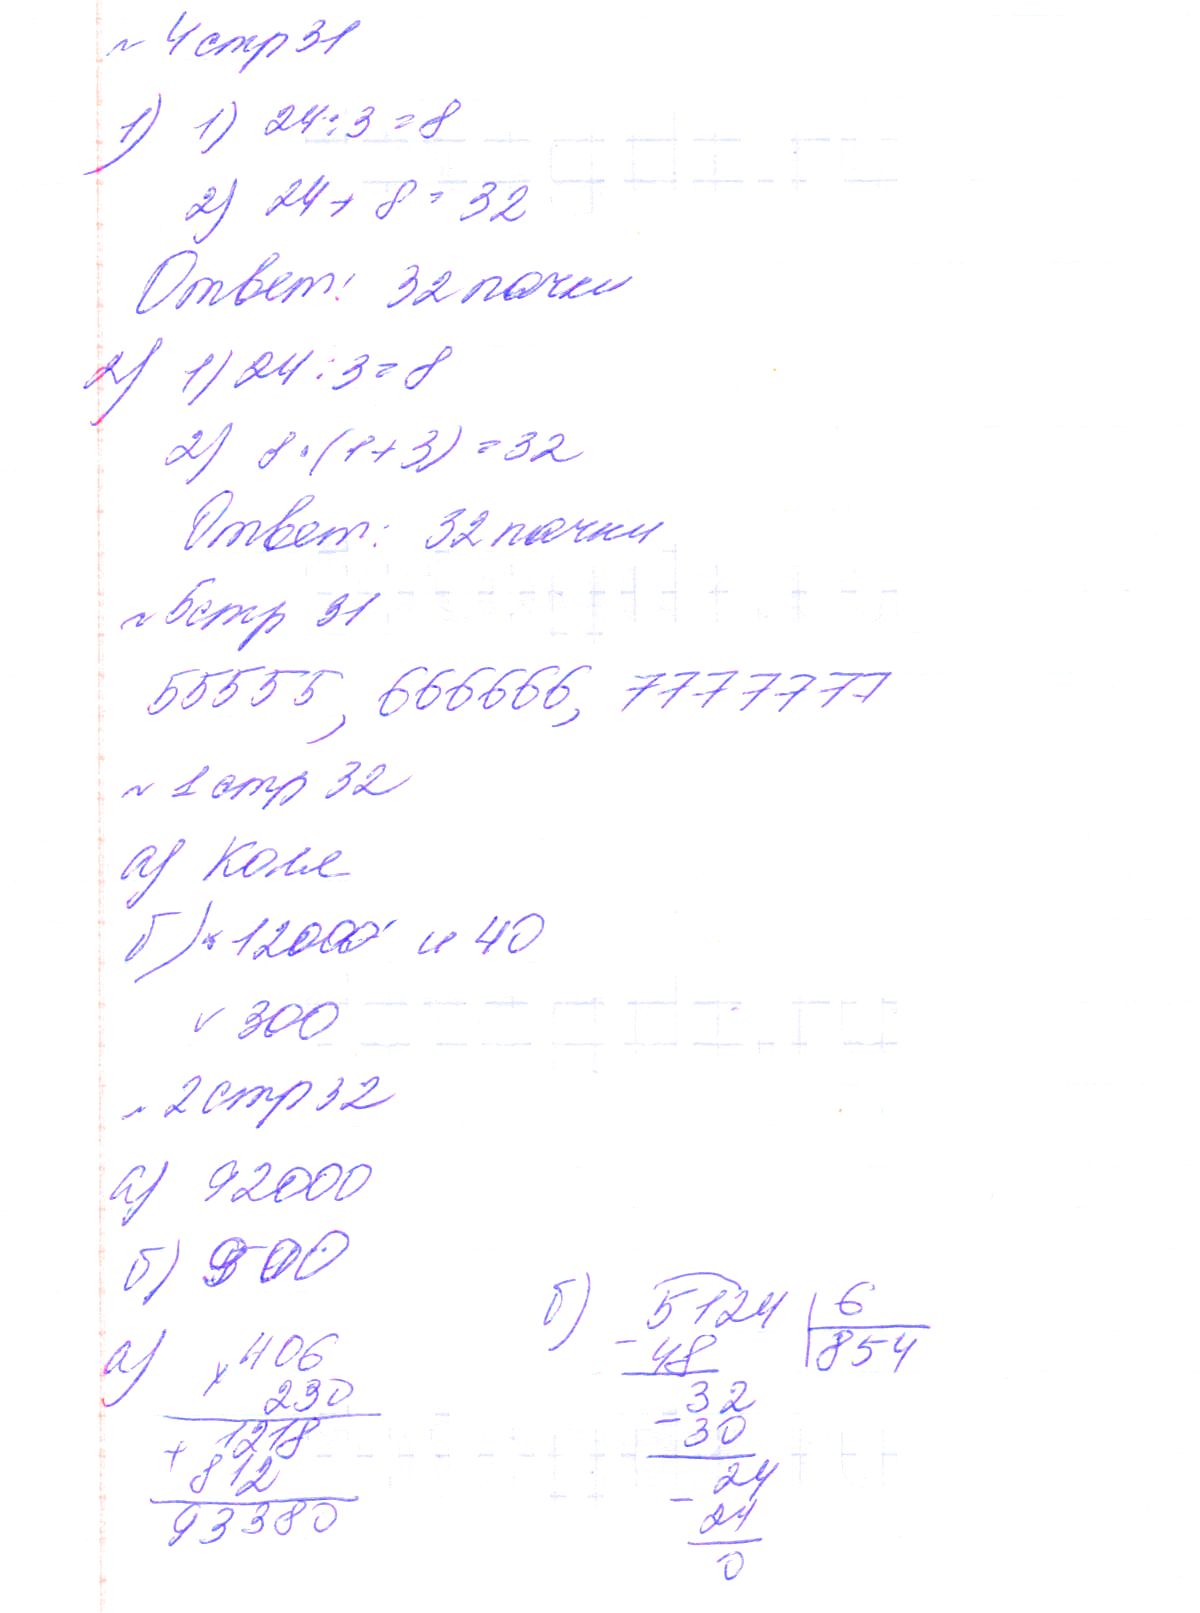 ~ 4 стр 31
1) 1) 24:3=8
2) 24+8=32
Ответ: 32 пачки
2) 1) 24:3=8
2) 8·(1+3)=32
Ответ: 32 пачки
~ 5 стр 31
55555, 666666, 7777777
~ 1 стр 32
а) Коля
б) 12000 и 40
v 300
~ 2 стр 32
а) 92000
б) 900
а) ×406
230
+1218
812
93380
б) 5124 6
-48 854
-32
30
-24
24
0